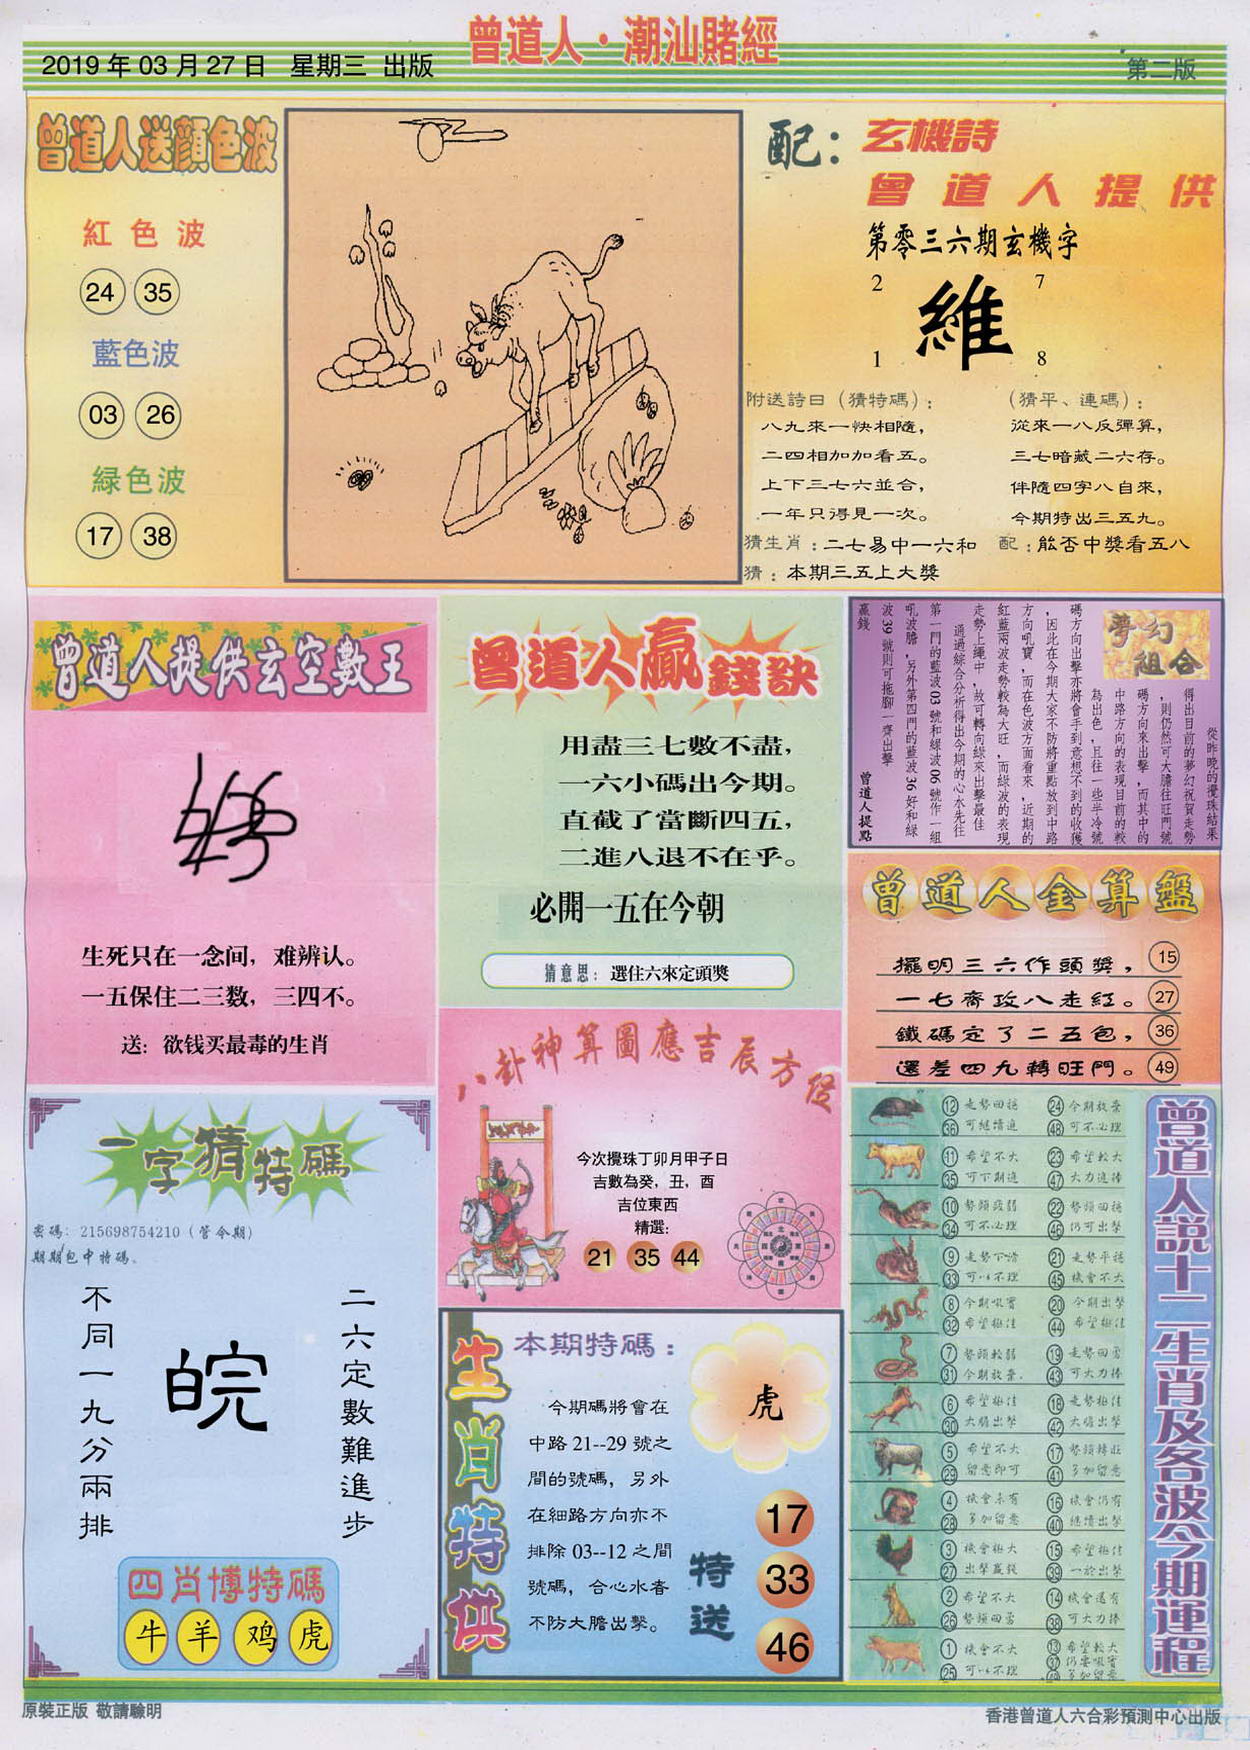 曾道人·潮汕賭經
2019年03月27日 星期三 出版
第二版
曾道人送顔色波
紅色波
24 35
藍色波
03 26
緑色波
17 38
配：
玄機詩
曾道人提供
第零三六期玄機字
2 7
維
1 8
附送詩曰（猜特碼）：
八九來一快相隨，
二四相加加看五。
上下三七六並合，
一年只得見一次。
（猜平、連碼）：
從來一八反彈算，
三七暗藏二六存。
伴隨四字八自來，
今期特出三五九。
猜生肖：二七易中一六和
配：能否中獎看五八
猜：本期三五上大獎
曾道人提供玄空數王
生死只在一念间，难辨认。
一五保住二三数，三四不。
送：欲钱买最毒的生肖
曾道人贏錢訣
用盡三七數不盡，
一六小碼出今期。
直截了當斷四五，
二進八退不在乎。
必開一五在今朝
猜意思：選住六來定頭獎
夢幻
組合
從昨晚的攪珠結果
得出目前的夢幻祝賀走勢
，則仍然可大膽往旺門號
碼方向來出擊，而其中的
中路方向的表現目前的較
為出色，且往一些半冷號
碼方向出擊亦將會手到意想不到的收獲
，因此在今期大家不防將重點放到中路
方向吼寶，而在色波方面看來，近期的
紅藍兩波走勢較為大旺，而綠波的表現
走勢上繩中，故可轉向綠來出擊最佳
通過綜合分析得出今期的心水先往
第一門的藍波03號和綠波06號作一組
吼波膽，另外第四門的藍波36好和綠
波39號則可拖腳一齊出擊
贏錢
曾道人提點
曾道人金算盤
擺明三六作頭獎，15
一七齊攻八走紅。27
鐵碼定了二五包，36
還差四九轉旺門。49
八卦神算圖應吉辰方位
今次攪珠丁卯月甲子日
吉數為癸，丑，酉
吉位東西
精選：
21 35 44
一字猜特碼
密碼：215698754210（管令期）
期期包中特碼。
二六定數難進步
皖
不同一九分兩排
四肖博特碼
牛 羊 鸡 虎
生肖特供
本期特碼：
今期碼將會在
中路21--29號之
間的號碼，另外
在細路方向亦不
排除03--12之間
號碼，合心水者
不防大膽出擊。
虎
特送
17
33
46
曾道人説十二生肖及各波今期運程
12 走勢回穩 24 今期放棄
36 可繼續追 48 可不必理
11 希望不大 23 希望較大
35 可下期追 47 大力追捧
10 勢頭疲弱 22 勢頭回穩
34 可不必理 46 仍可出擊
9 走勢下滑 21 走勢平穩
33 可以不理 45 機會不大
8 今期吸寶 20 今期出擊
32 希望極佳 44 希望極佳
7 勢頭較弱 19 走勢回勇
31 今期放棄 43 可大力捧
6 希望極佳 18 走勢極佳
30 大膽出擊 42 大膽出擊
5 希望不大 17 勢頭轉旺
29 留意即可 41 多加留意
4 機會未有 16 機會仍有
28 多加留意 40 繼續出擊
3 機會極大 15 希望極佳
27 出擊贏錢 39 一於出擊
2 希望不大 14 機會還有
26 勢頭回勇 38 可大力捧
1 機會不大 13 希望較大
25 可以不理 37 仍要吸寶
49 多加留意
原裝正版 敬請驗明
香港曾道人六合彩預測中心出版